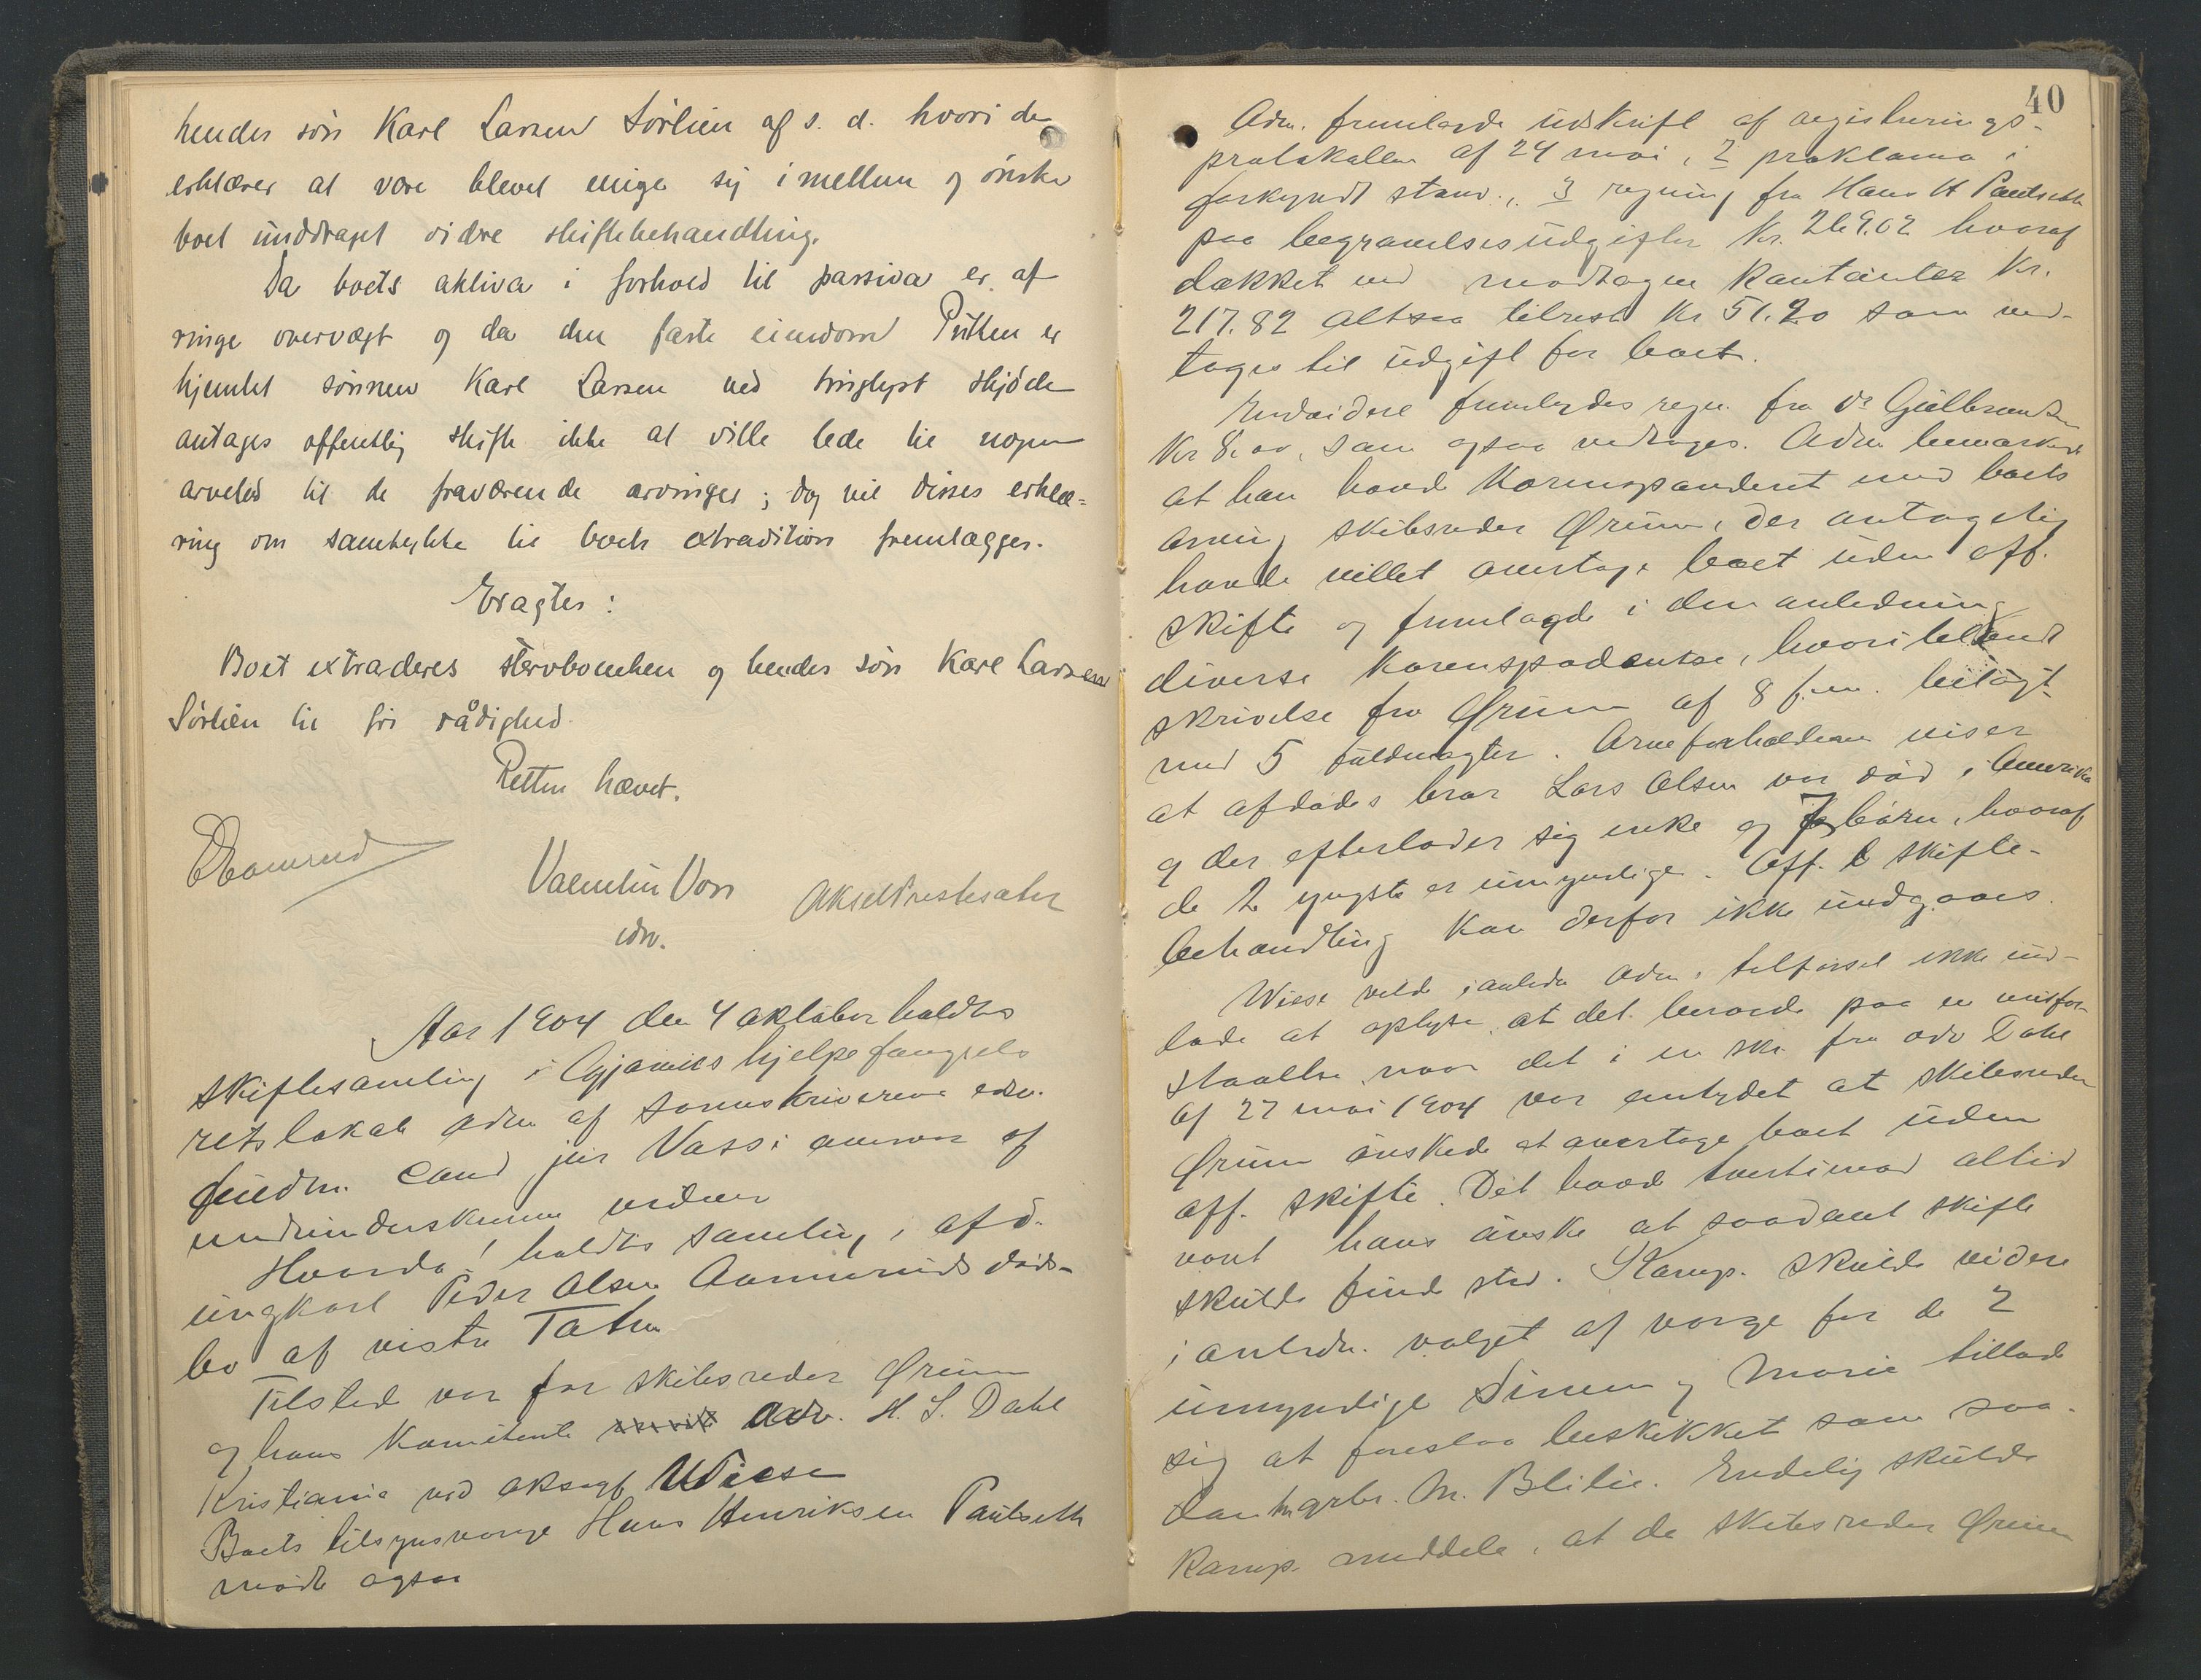 hendes søn Karl Larsen Sørlien af s. d. hvori de
erklærer at være blevet enige sig imellem og ønske
boet unddraget videre skiftebehandling.
Da boets aktiva i forhold til passiva er af
ringe overvægt og da den faste eiendom Putten er
hjemlet sønnen Karl Larsen ved tinglyst skjøde
antages offentlig skifte ikke at ville lede til nogen
arvelod til de fraværende arvinger; dog vil disses erklæ=
ring om samtykke til boets extradition fremlægges.
Eragtes:
Boet extraderes stervboenken og hendes søn Karl Larsen
Sørlien til fri rådighed.
Retten hævet.
Valentin Voss
edsv.
Aar 1904 den 4 oktober holdtes
skiftesamling i Gjøviks hjelpefængsels
retslokale adm af sorenskriverens edsv.
fuldm. cand jur Voss i overvær af
undtunderskrevne vidner
Hvorda! holdtes samling i afd.
ungkarl Peder Olsen Aameruds døds-
bo af vestre Toten
Tilsted var for skibsreder Ørum
og hans komitente adv. H. S. Dahl
Kristiania ved oksagf Wiese
Boets tilsynsvorge Hans Henriksen Paulseth
mødte ogsaa
40
Adm. fremlagde udskrift af registrerings-
protokollen af 24 mai, 2 proklama i
forkyndt stand, 3 regning fra Hans H Paulseth
paa begravelsesudgifter Kr. 269.02 hvoraf
dækket ved modtagne kontanter Kr.
217.82 altsaa tilrest Kr 51.20 som ved-
toges til udgift for boet.
Endvidere fremlagdes regn. fra dr Gulbrandsen
Kr 8.00, som ogsaa vedtoges. Adm bemærkede
at han havde korresponderet med boets
arving skibsreder Ørum, der antagelig
havde villet overtage boet uden off.
skifte og fremlagde i den anledning
diverse korrespondance, hvoriblandt
skrivelse fra Ørum af 8 f.m. bilagt
med 5 fuldmagter. Arveforholdene viser
at afdødes bror Lars Olsen var død i Amerika
og der efterlader sig enke og 7 børn, hvoraf
de 2 yngste er umyndige. Off. skifte-
behandling kan derfor ikke undgaaes.
Wiese vilde i anledn adm. tilførsel ikke und-
lade at oplyse at det beroede paa en misfor-
staaelse naar det i en skr. fra adv Dahl
af 27 mai 1904 var antydet at skibsreder
Ørum ønskede at overtage boet uden
off. skifte. Det havde tvertimod altid
vært hans ønske at saadant skifte
skulde finde sted. Komp. skulde videre
i anledn. valget af vorge for de 2
umyndige Simen og Marie tillade
sig at foreslaa beskikket som saa-
dan M. Blilie. Endelig skulde
komp. meddele, at da skibsreder Ørum